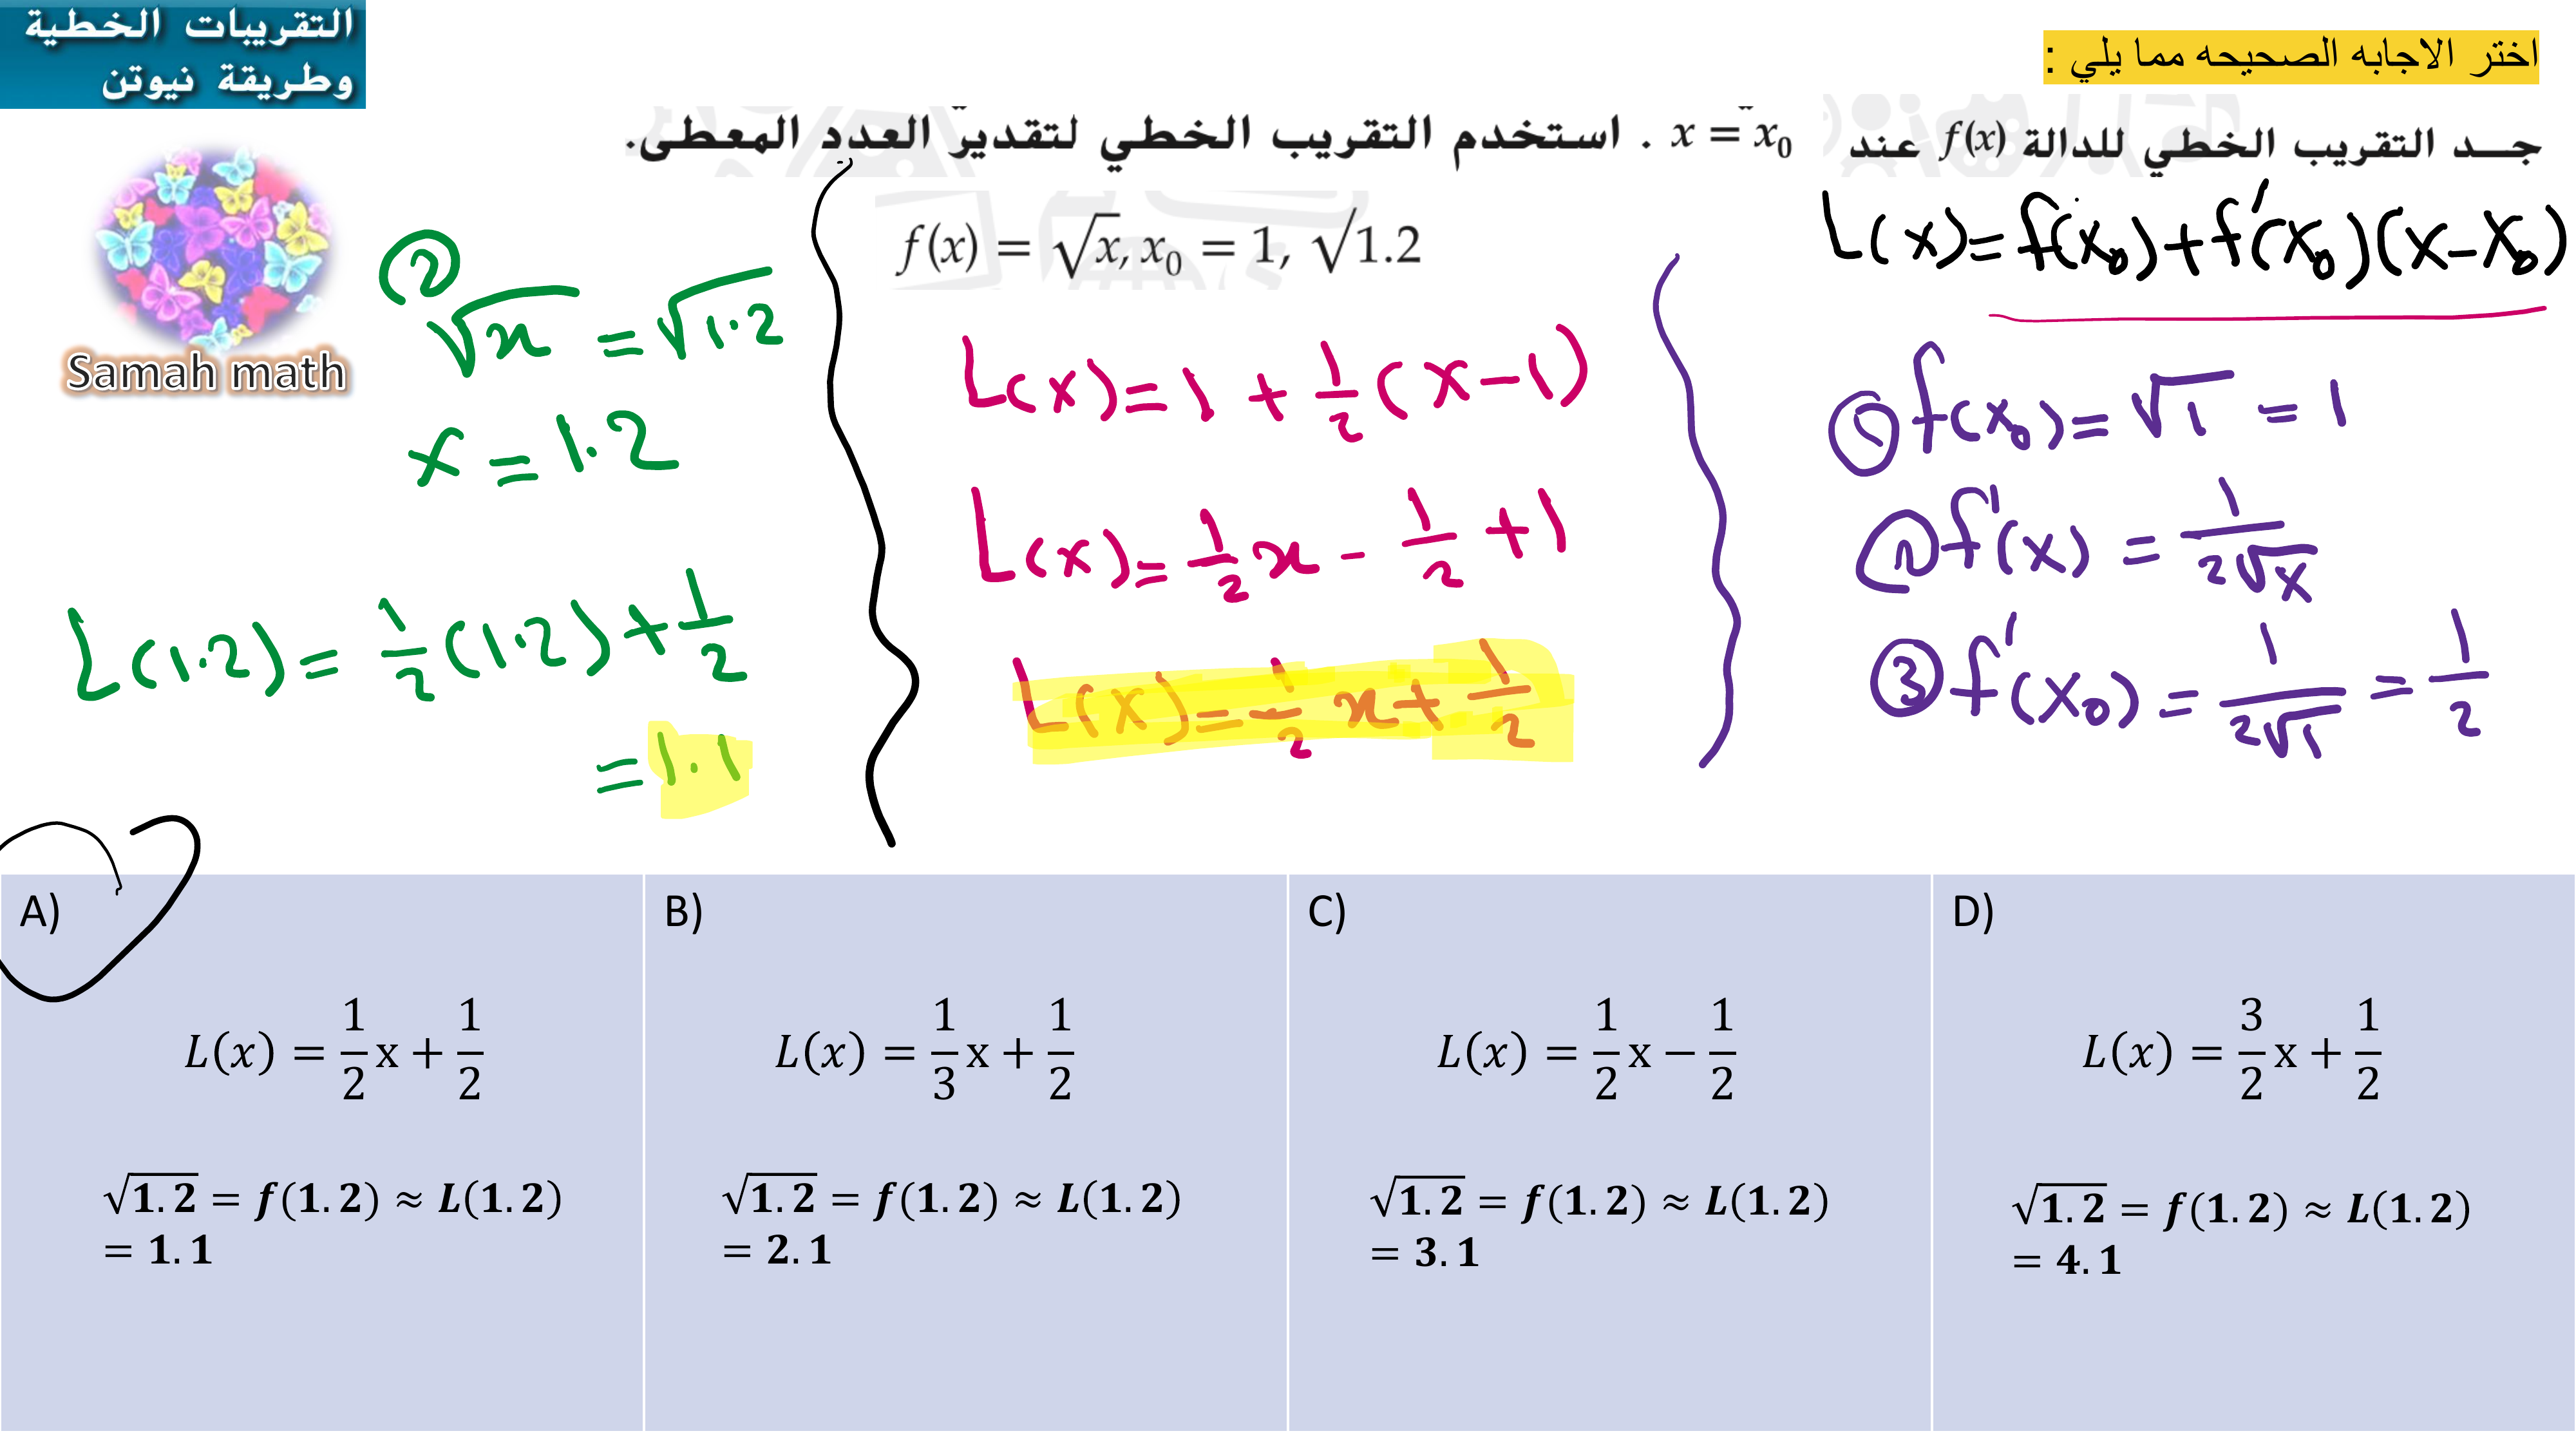 التقريبات الخطية
وطريقة نيوتن
اختر الاجابه الصحيحه مما يلي :
جد التقريب الخطي للدالة f(x) عند x = x₀ . استخدم التقريب الخطي لتقدير العدد المعطى.
f(x) = √x, x₀ = 1, √1.2
Samah math
L(x) = f(x₀) + f'(x₀)(x − x₀)
① f(x₀) = √1 = 1
② f'(x) = 1/(2√x)
③ f'(x₀) = 1/(2√1) = 1/2
L(x) = 1 + 1/2 (x − 1)
L(x) = 1/2 x − 1/2 + 1
L(x) = 1/2 x + 1/2
②
√x = √1.2
x = 1.2
L(1.2) = 1/2 (1.2) + 1/2
= 1.1
A)
L(x) = 1/2 x + 1/2
√1.2 = f(1.2) ≈ L(1.2)
= 1.1
B)
L(x) = 1/3 x + 1/2
√1.2 = f(1.2) ≈ L(1.2)
= 2.1
C)
L(x) = 1/2 x − 1/2
√1.2 = f(1.2) ≈ L(1.2)
= 3.1
D)
L(x) = 3/2 x + 1/2
√1.2 = f(1.2) ≈ L(1.2)
= 4.1